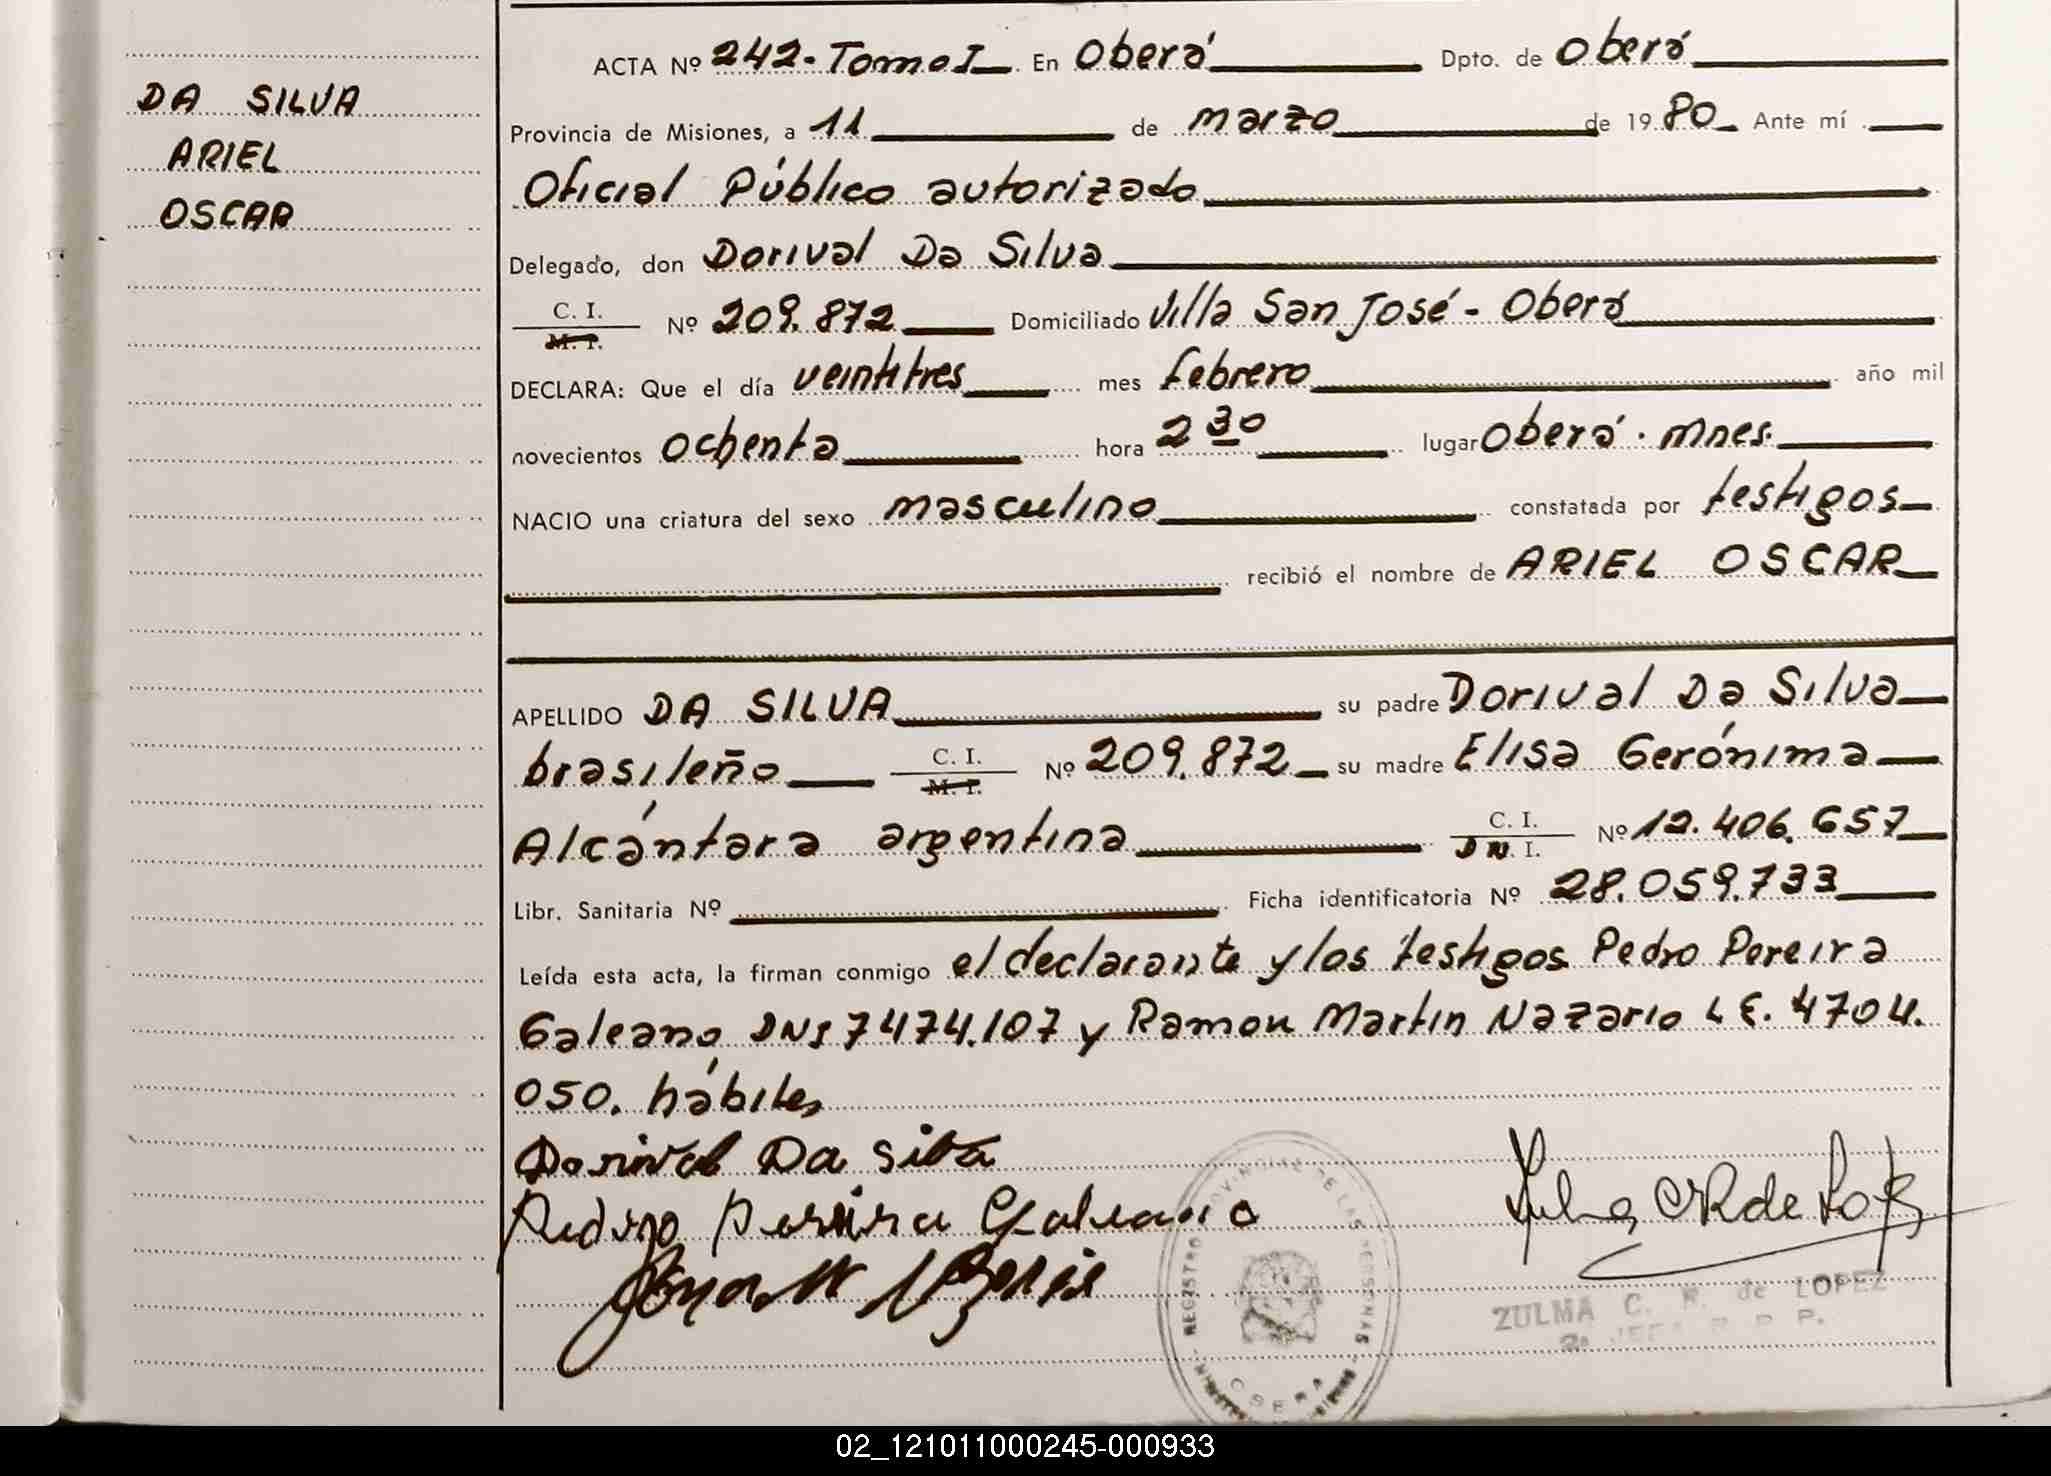 DA SILVA
ARIEL
OSCAR
ACTA Nº 242-Tomo I En Oberá Dpto. de Oberá
Provincia de Misiones, a 11 de marzo de 1980 Ante mí
Oficial Público autorizado
Delegado, don Dorival Da Silva
C. I.
M. I. Nº 209.872 Domiciliado Villa San José - Oberá
DECLARA: Que el día veintitres mes febrero año mil
novecientos ochenta hora 2 30 lugar Oberá. Mnes.
NACIO una criatura del sexo masculino constatada por testigos
recibió el nombre de ARIEL OSCAR
APELLIDO DA SILVA su padre Dorival Da Silva
brasileño C. I. M. I. Nº 209.872 su madre Elisa Gerónima
Alcántara argentina C. I. D N. I. Nº 12.406.657
Libr. Sanitaria Nº Ficha identificatoria Nº 28.059.733
Leída esta acta, la firman conmigo el declarante y los testigos Pedro Pereira
Galeano DNI 7474.107 y Ramon Martin Nazario L E. 4704.
050. hábiles
Dorival Da Silva
Pedro Pereira Galeano
REGISTRO PROVINCIAL DE LAS PERSONAS
OBERA
ZULMA C. R. de LOPEZ
2a JEFA R P P.
02_121011000245-000933